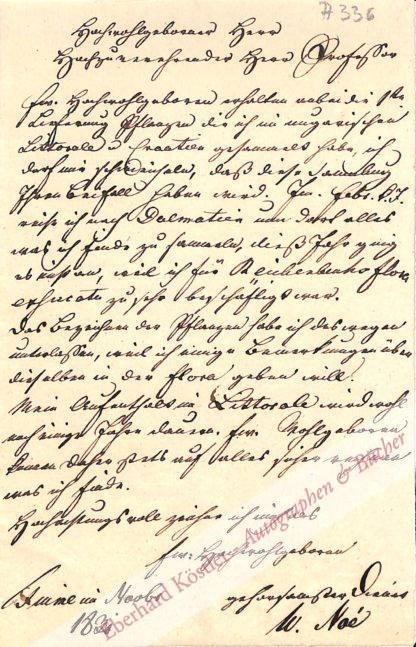 A 336
Hochwohlgeborner Herr
Hochzuverehrender Herr Professor
Ew. Hochwohlgeboren erhalten anbei die 1te
Lieferung Pflanzen die ich im ungarischen
Littorale u Croatien gesammelt habe, ich
darf mir schmeicheln, daß diese Sammlung
Ihren Beifall haben wird. Im Febr. k. J.
reise ich nach Dalmatien um dort alles
was ich finde zu sammeln, dieß Jahr ging
es nicht an, weil ich für Reichenbachs flora
exsiccata zu sehr beschäftigt war.
Das Bezeichnen der Pflanzen habe ich deswegen
unterlassen, weil ich einige Bemerkungen über
dieselben in der flora geben will.
Mein Aufenthalt im Littorale wird wohl
noch einige Jahre dauern. Ew. Wohlgeboren
können daher stets auf alles sicher rechnen
was ich finde.
Hochachtungsvoll zeichne ich mich als
Ew. Hochwohlgeboren
Fiume im Novbr
gehorsamster Diener
W. Noë
Eberhard Köstler Autographen & Bücher